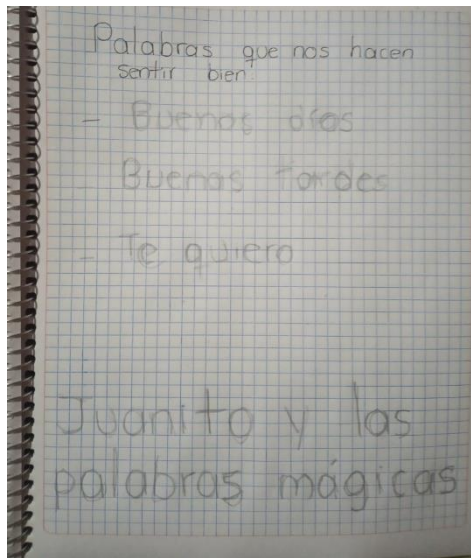 Palabras que nos hacen
sentir bien:
- Buenos días
- Buenas tardes
- Te quiero
Juanito y las
palabras mágicas